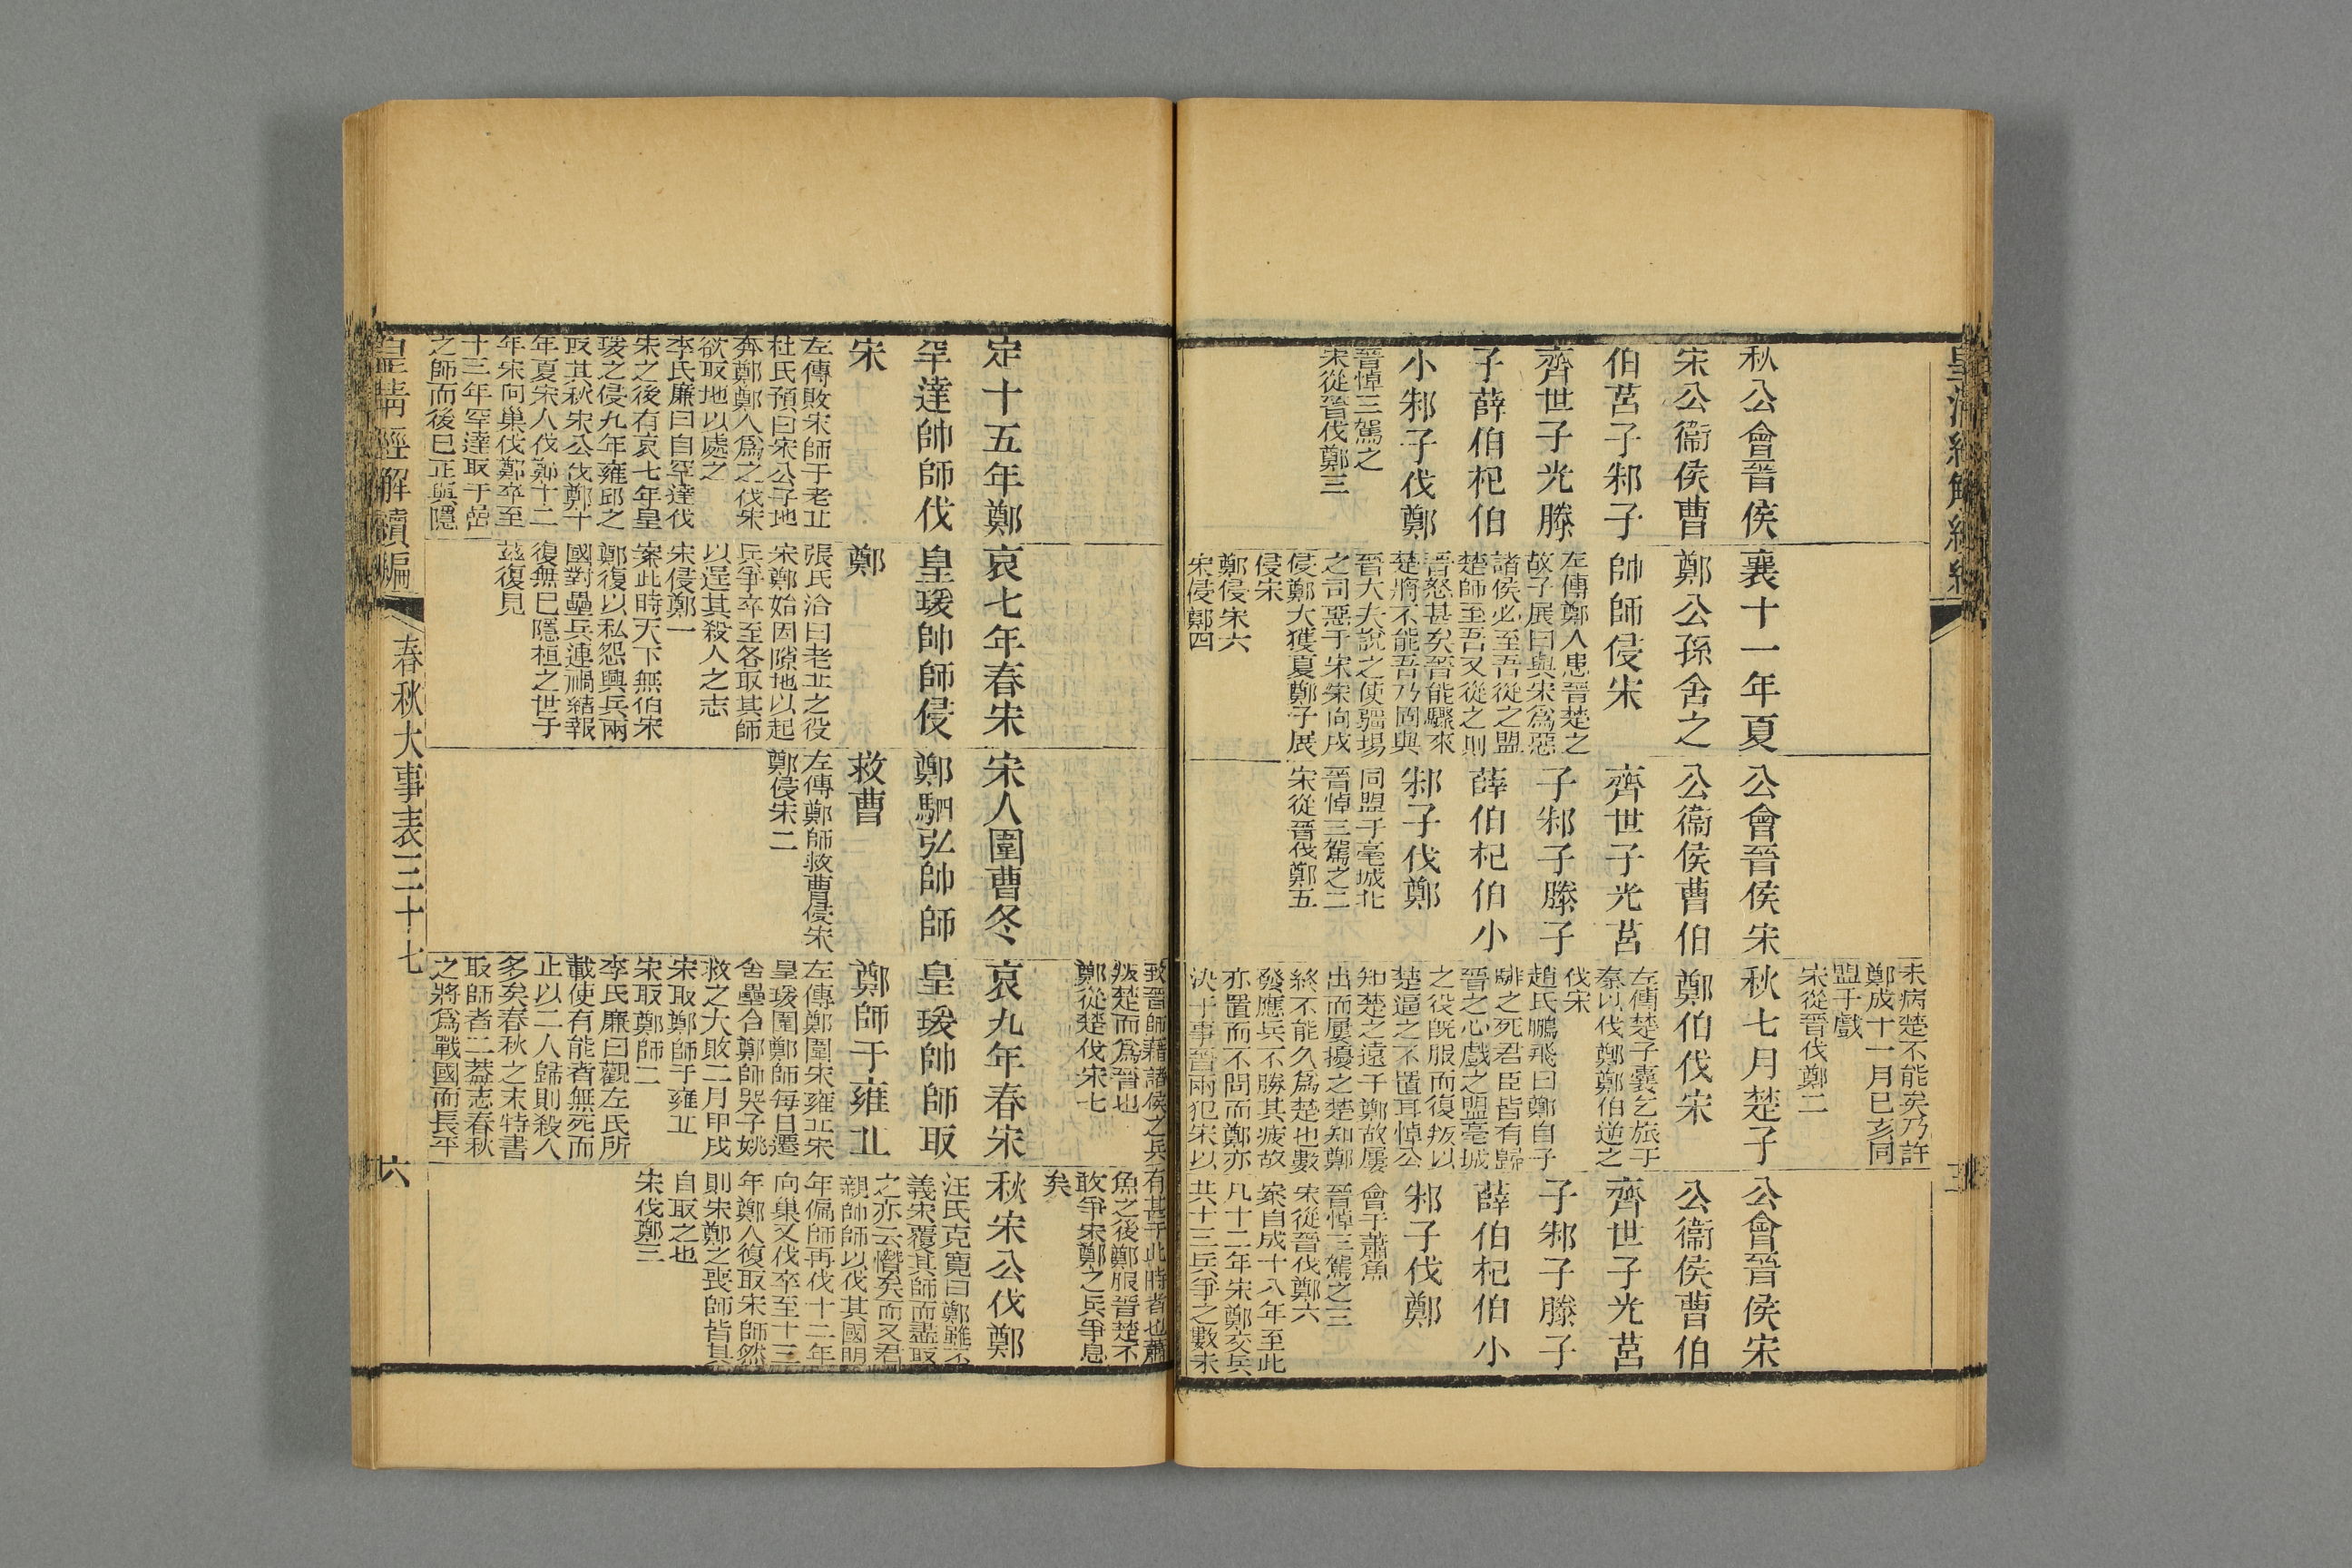 秋公會晉侯
宋公衞侯曹
伯莒子邾子
齊世子光滕
子薛伯杞伯
小邾子伐鄭
晉悼三駕之
宋從晉伐鄭三
襄十一年夏
鄭公孫舍之
帥師侵宋
左傳鄭人患晉楚之
故子展曰與宋爲惡
諸侯必至吾從之盟
楚師至吾又從之則
晉怒甚矣晉能驟來
楚將不能吾乃固與
晉大夫說之使疆埸
之司惡于宋宋向戌
侵鄭大獲夏鄭子展
侵宋
鄭侵宋六
宋侵鄭四
公會晉侯宋
公衞侯曹伯
齊世子光莒
子邾子滕子
薛伯杞伯小
邾子伐鄭
同盟于亳城北
晉悼三駕之二
宋從晉伐鄭五
未病楚不能矣乃許
鄭成十一月己亥同
盟于戲
宋從晉伐鄭二
秋七月楚子
鄭伯伐宋
左傳楚子囊乞旅于
秦以伐鄭鄭伯逆之
伐宋
趙氏鵬飛曰鄭自子
駟之死君臣皆有歸
晉之心戲之盟亳城
之役旣服而復叛以
楚逼之不置耳悼公
知楚之遠于鄭故屢
出而屢擾之楚知鄭
終不能久爲楚也數
發應兵不勝其疲故
亦置而不問而鄭亦
決于事晉兩犯宋以
公會晉侯宋
公衞侯曹伯
齊世子光莒
子邾子滕子
薛伯杞伯小
邾子伐鄭
會于蕭魚
晉悼三駕之三
宋從晉伐鄭六
案自成十八年至此
凡十二年宋鄭交兵
共十三兵爭之數未
定十五年鄭
罕達帥師伐
宋
左傳敗宋師于老丘
杜氏預曰宋公子地
奔鄭鄭人爲之伐宋
欲取地以處之
李氏廉曰自罕達伐
宋之後有哀七年皇
瑗之侵九年雍邱之
取其秋宋公伐鄭十
年夏宋人伐鄭十二
年宋向巢伐鄭卒至
十三年罕達取于嵒
之師而後已正與隱
哀七年春宋
皇瑗帥師侵
鄭
張氏洽曰老丘之役
宋鄭始因隙地以起
兵爭卒至各取其師
以逞其殺人之志
宋侵鄭一
案此時天下無伯宋
鄭復以私怨興兵兩
國對壘兵連禍結報
復無已隱桓之世于
茲復見
宋人圍曹冬
鄭駟弘帥師
救曹
左傳鄭師救曹侵宋
鄭侵宋二
致晉師藉諸侯之兵
叛楚而爲晉也
鄭從楚伐宋七
哀九年春宋
皇瑗帥師取
鄭師于雍丘
左傳鄭圍宋雍丘宋
皇瑗圍鄭師每日遷
舍壘合鄭師哭子姚
救之大敗二月甲戌
宋取鄭師于雍丘
宋取鄭師二
李氏廉曰觀左氏所
載使有能者無死而
止以二人歸則殺人
多矣春秋之末特書
取師者二蓋志春秋
之將爲戰國而長平
有甚于此時者也蕭
魚之後鄭服晉楚不
敢爭宋鄭之兵爭息
矣
秋宋公伐鄭
汪氏克寬曰鄭雖不
義宋覆其師而盡取
之亦云憯矣而又君
親帥師以伐其國明
年偏師再伐十二年
向巢又伐卒至十三
年鄭人復取宋師然
則宋鄭之喪師皆其
自取之也
宋伐鄭三
皇清經解續編
春秋大事表三十七
六